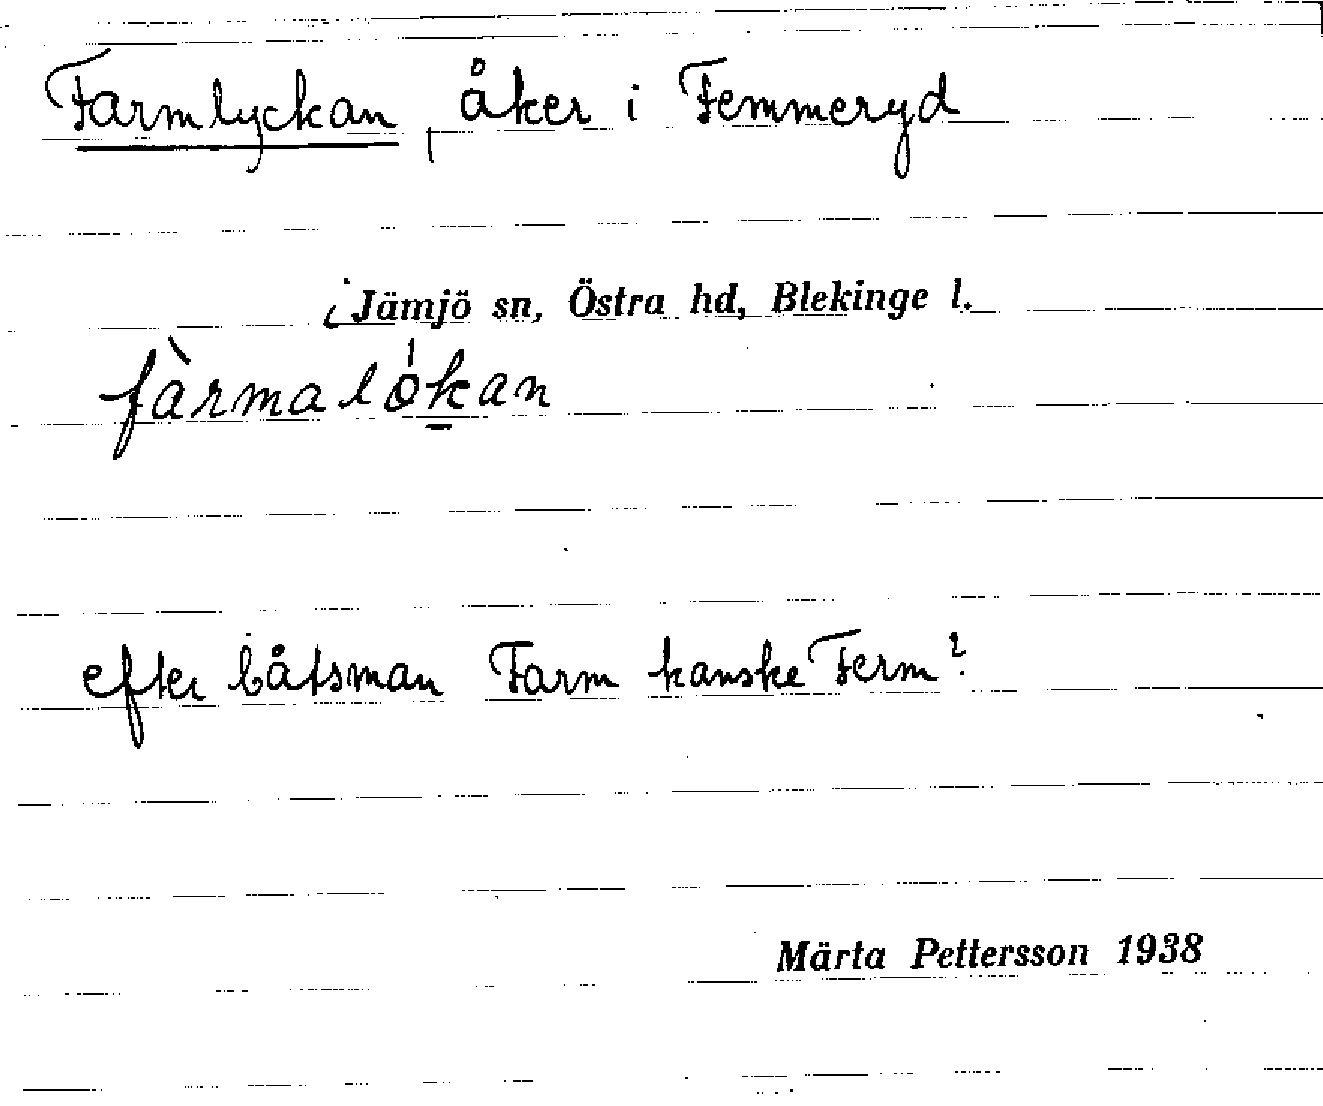 Farmlyckan, åker i Femmeryd
Jämjö sn, Östra hd, Blekinge l.
fàrmalókan
efter båtsman Farm kanske Ferm?
Märta Pettersson 1938